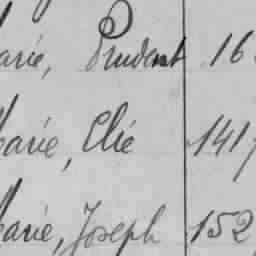 arie, Prudent 16
Marie, Elie 1417
Marie, Joseph 152